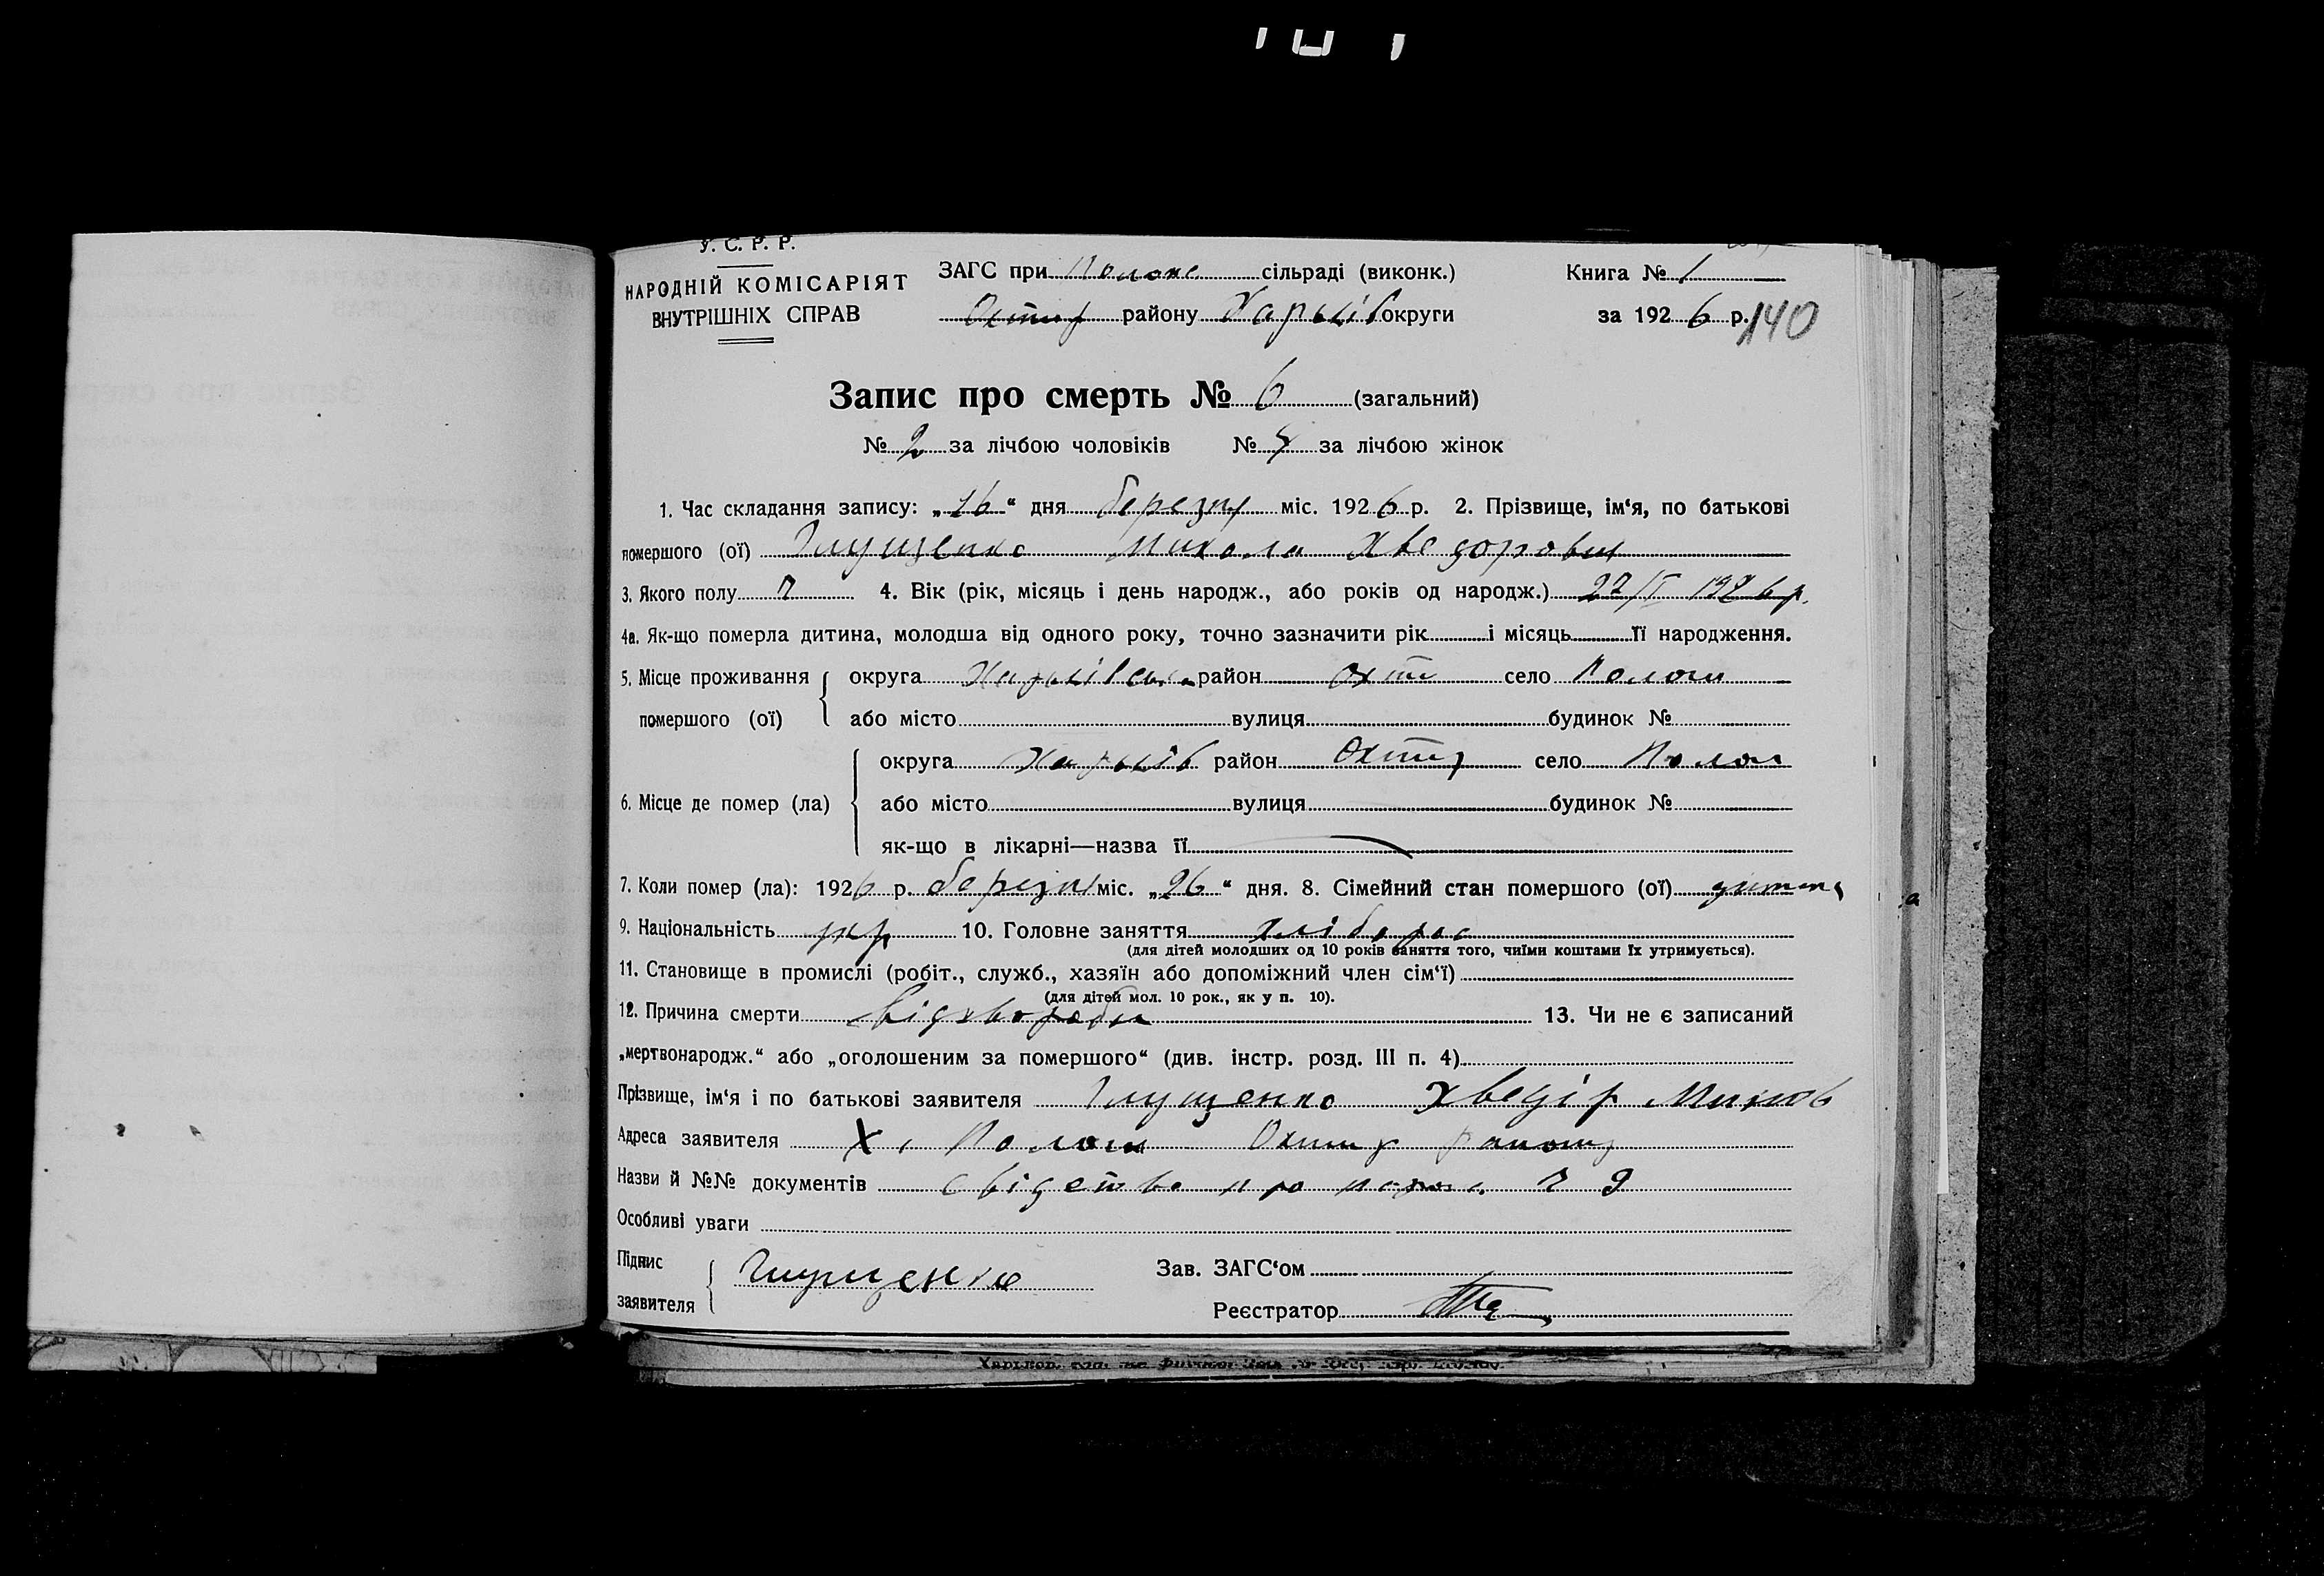 У. С. Р. Р.
НАРОДНІЙ КОМІСАРІЯТ
ВНУТРІШНІХ СПРАВ
ЗАГС при сільраді (виконк.)
Охтир району Харьків округи
Книга № 1
за 1926 р.
140
Запис про смерть № 6 (загальний)
№ 2 за лічбою чоловіків № 4 за лічбою жінок
1. Час складання запису: „26“ дня березня міс. 1926 р. 2. Прізвище, ім‘я, по батькові
помершого (ої) Глущенко Микола Хведорович
3. Якого полу Ч 4. Вік (рік, місяць і день народж., або років од народж.) 1926 р.
4а. Як-що померла дитина, молодша від одного року, точно зазначити рік і місяць її народження.
5. Місце проживання помершого (ої) округа Харьківська район Охти село
або місто вулиця будинок №
6. Місце де помер (ла) округа Харьків район Охтир село
або місто вулиця будинок №
як-що в лікарні—назва її
7. Коли помер (ла): 1926 р. березня міс. „26“ дня. 8. Сімейний стан помершого (ої) дитина
9. Національність укр 10. Головне заняття хлібороб
(для дітей молодших од 10 років заняття того, чиїми коштами їх утримується).
11. Становище в промислі (робіт., служб., хазяїн або допоміжний член сім‘ї)
(для дітей мол. 10 рок., як у п. 10).
12. Причина смерти від хвороби 13. Чи не є записаний
„мертвонародж.“ або „оголошеним за помершого“ (див. інстр. розд. III п. 4)
Прізвище, ім‘я і по батькові заявителя Глущенко Хведір
Адреса заявителя х. Охтир району
Назви й №№ документів про
Особливі уваги
Підпис заявителя Глущенко
Зав. ЗАГС‘ом
Реєстратор